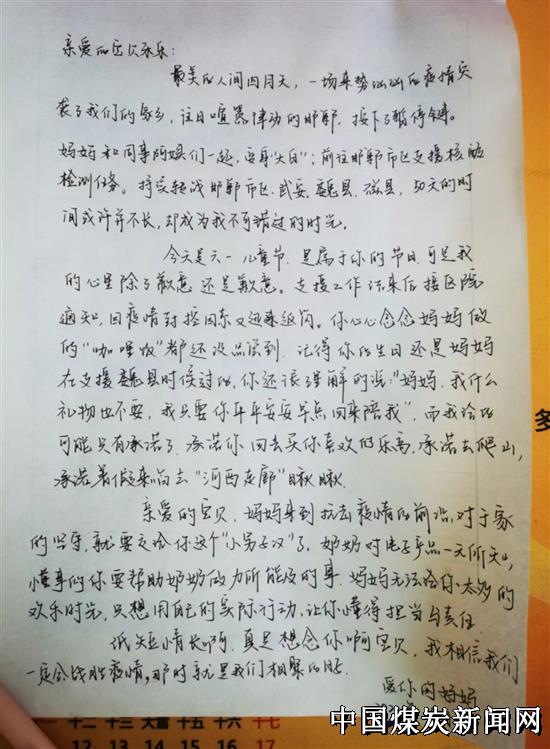 亲爱的宝贝乐乐:
最美的人间四月天,一场来势汹汹的疫情突
袭了我们的家乡,往日喧嚣律动的邯郸,按下了暂停键。
妈妈和同事的娘们一起,变身"大白",前往邯郸市区支援核酸
检测任务。持续转战邯郸市区、武安、魏县、磁县,50天的时
间或许并不长,却成为我不可错过的时光。
今天是六一儿童节,是属于你的节日,可是我
的心里除了歉意还是歉意。支援工作结束后接医院
通知,因疫情封控因东又迟来返岗。你心心念念妈妈做
的"咖喱饭"都还没品尝到,记得你的生日还是妈妈
在支援魏县时候过的,你还很理解的说:"妈妈,我什么
礼物也不要,我只要你平平安安早点回来陪我",而我给的
可能只有承诺了,承诺你回去买你喜欢的乐高,承诺去爬山,
承诺暑假来临去"河西走廊"瞅瞅。
亲爱的宝贝,妈妈来到抗击疫情的前沿,对于家
的坚守,就要交给你这个"小男子汉"了,奶奶对电子产品一无所知,
懂事的你要帮助奶奶做力所能及的事,妈妈无法给你太多的
欢乐时光,只想用自己的实际行动,让你懂得担当与责任
纸短情长啊,真是想念你啊宝贝,我相信我们
一定会战胜疫情,那时就是我们相聚的日子。
爱你的妈妈
中国煤炭新闻网
多
十二 十三 大雪 十五 十六 十七
12 13 14 15 16 17